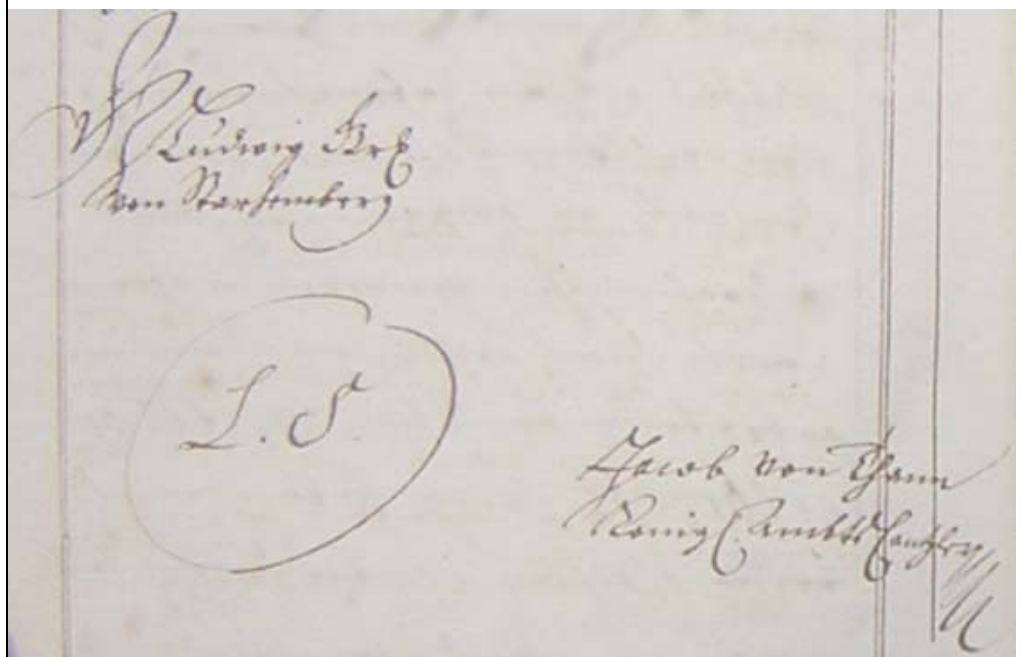 Ludwig
von Starhemberg
L. S.
Jacob von Thann
König Ambts Cantzley